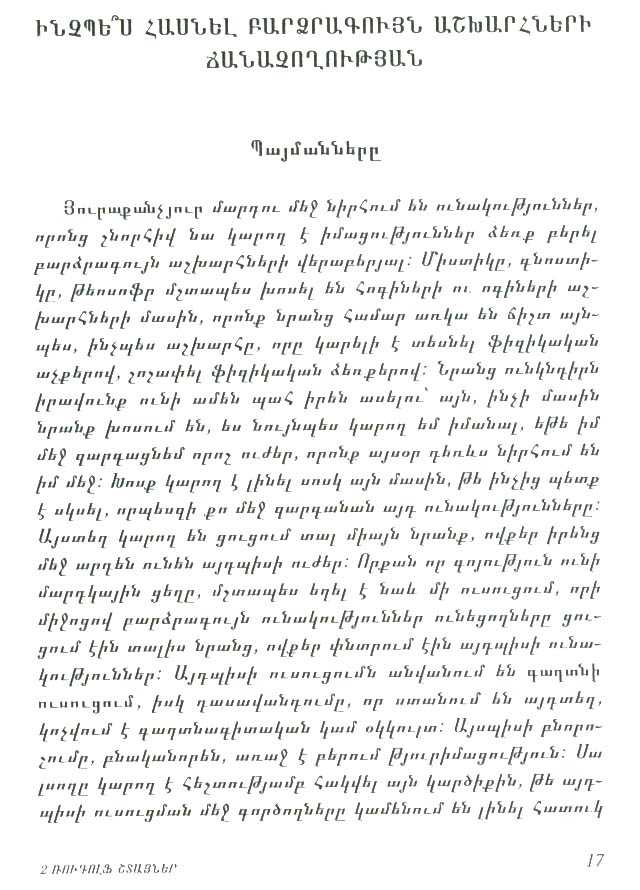 ԻՆՉՊԵ՞Ս ՀԱՍՆԵԼ ԲԱՐՁՐԱԳՈՒՅՆ ԱՇԽԱՐՀՆԵՐԻ
ՃԱՆԱՉՈՂՈՒԹՅԱՆ
Պայմանները
Յուրաքանչյուր մարդու մեջ նիրհում են ունակություններ,
որոնց շնորհիվ նա կարող է իմացություններ ձեռք բերել
բարձրագույն աշխարհների վերաբերյալ: Միստիկը, գնոստի-
կը, թեոսոֆը մշտապես խոսել են հոգիների ու ոգիների աշ-
խարհների մասին, որոնք նրանց համար առկա են ճիշտ այն-
պես, ինչպես աշխարհը, որը կարելի է տեսնել ֆիզիկական
աչքերով, շոշափել ֆիզիկական ձեռքերով: Նրանց ունկնդիրն
իրավունք ունի ամեն պահ իրեն ասելու՝ այն, ինչի մասին
նրանք խոսում են, ես նույնպես կարող եմ իմանալ, եթե իմ
մեջ զարգացնեմ որոշ ուժեր, որոնք այսօր դեռևս նիրհում են
իմ մեջ: Խոսք կարող է լինել սոսկ այն մասին, թե ինչից պետք
է սկսել, որպեսզի քո մեջ զարգանան այդ ունակությունները:
Այստեղ կարող են ցուցում տալ միայն նրանք, ովքեր իրենց
մեջ արդեն ունեն այդպիսի ուժեր: Որքան որ գոյություն ունի
մարդկային ցեղը, մշտապես եղել է նաև մի ուսուցում, որի
միջոցով բարձրագույն ունակություններ ունեցողները ցու-
ցում էին տալիս նրանց, ովքեր փնտրում էին այդպիսի ունա-
կություններ: Այդպիսի ուսուցումն անվանում են գաղտնի
ուսուցում, իսկ դասավանդումը, որ ստանում են այդտեղ,
կոչվում է գաղտնագիտական կամ օկկուլտ: Այսպիսի բնորո-
շումը, բնականորեն, առաջ է բերում թյուրիմացություն: Սա
լսողը կարող է հեշտությամբ հակվել այն կարծիքին, թե այդ-
պիսի ուսուցման մեջ գործողները կամենում են լինել հատուկ
2 ՌՈՒԴՈԼՖ ՇՏԱՅՆԵՐ
17